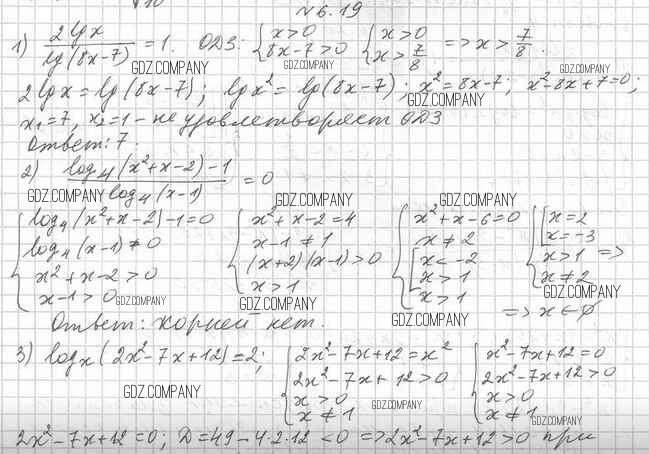 №6.19
1) 2lgx / lg(8x-7) = 1. ОДЗ: { x>0 8x-7>0 { x>0 x>7/8 => x>7/8.
GDZ.COMPANY GDZ.COMPANY GDZ.COMPANY
2lgx = lg(8x-7); lgx² = lg(8x-7); x² = 8x-7; x²-8x+7=0;
GDZ.COMPANY
x₁=7, x₂=1 - не удовлетворяет ОДЗ
Ответ: 7.
2) log₄(x²+x-2)-1 / log₄(x-1) = 0
GDZ.COMPANY GDZ.COMPANY GDZ.COMPANY
{ log₄(x²+x-2)-1=0 { x²+x-2=4 { x²+x-6=0 { [ x=2
log₄(x-1)≠0 x-1≠1 x≠2 x=-3
x²+x-2>0 (x+2)(x-1)>0 [ x<-2 x>1 =>
x-1>0 x>1 x>1 x≠2
GDZ.COMPANY GDZ.COMPANY GDZ.COMPANY
x>1 => x∈∅
Ответ: корней нет. GDZ.COMPANY
3) logₓ(2x²-7x+12)=2; { 2x²-7x+12=x² { x²-7x+12=0
2x²-7x+12>0 2x²-7x+12>0
GDZ.COMPANY x>0 x>0
x≠1 GDZ.COMPANY x≠1 GDZ.COMPANY
2x²-7x+12=0; D=49-4·2·12<0 => 2x²-7x+12>0 при